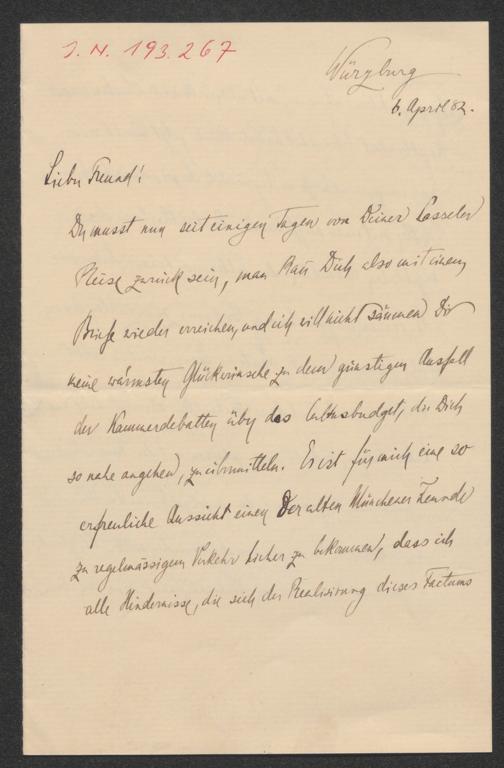 J. N. 193.267
Würzburg
6. April 82.
Lieber Freund!
Du musst nun seit einigen Tagen von Deiner Casseler
Reise zurück sein, man kann Dich also mit einem
Briefe wieder erreichen, und ich will nicht säumen Dir
meine wärmsten Glückwünsche zu dem günstigen Ausfall
der Kammerdebatten über das Cultusbudget, die Dich
so nahe angehen, zu übermitteln. Es ist für mich eine so
erfreuliche Aussicht einen der alten Münchener Freunde
zu regelmässigem Verkehr hieher zu bekommen, dass ich
alle Hindernisse, die sich der Realisirung dieses Factums